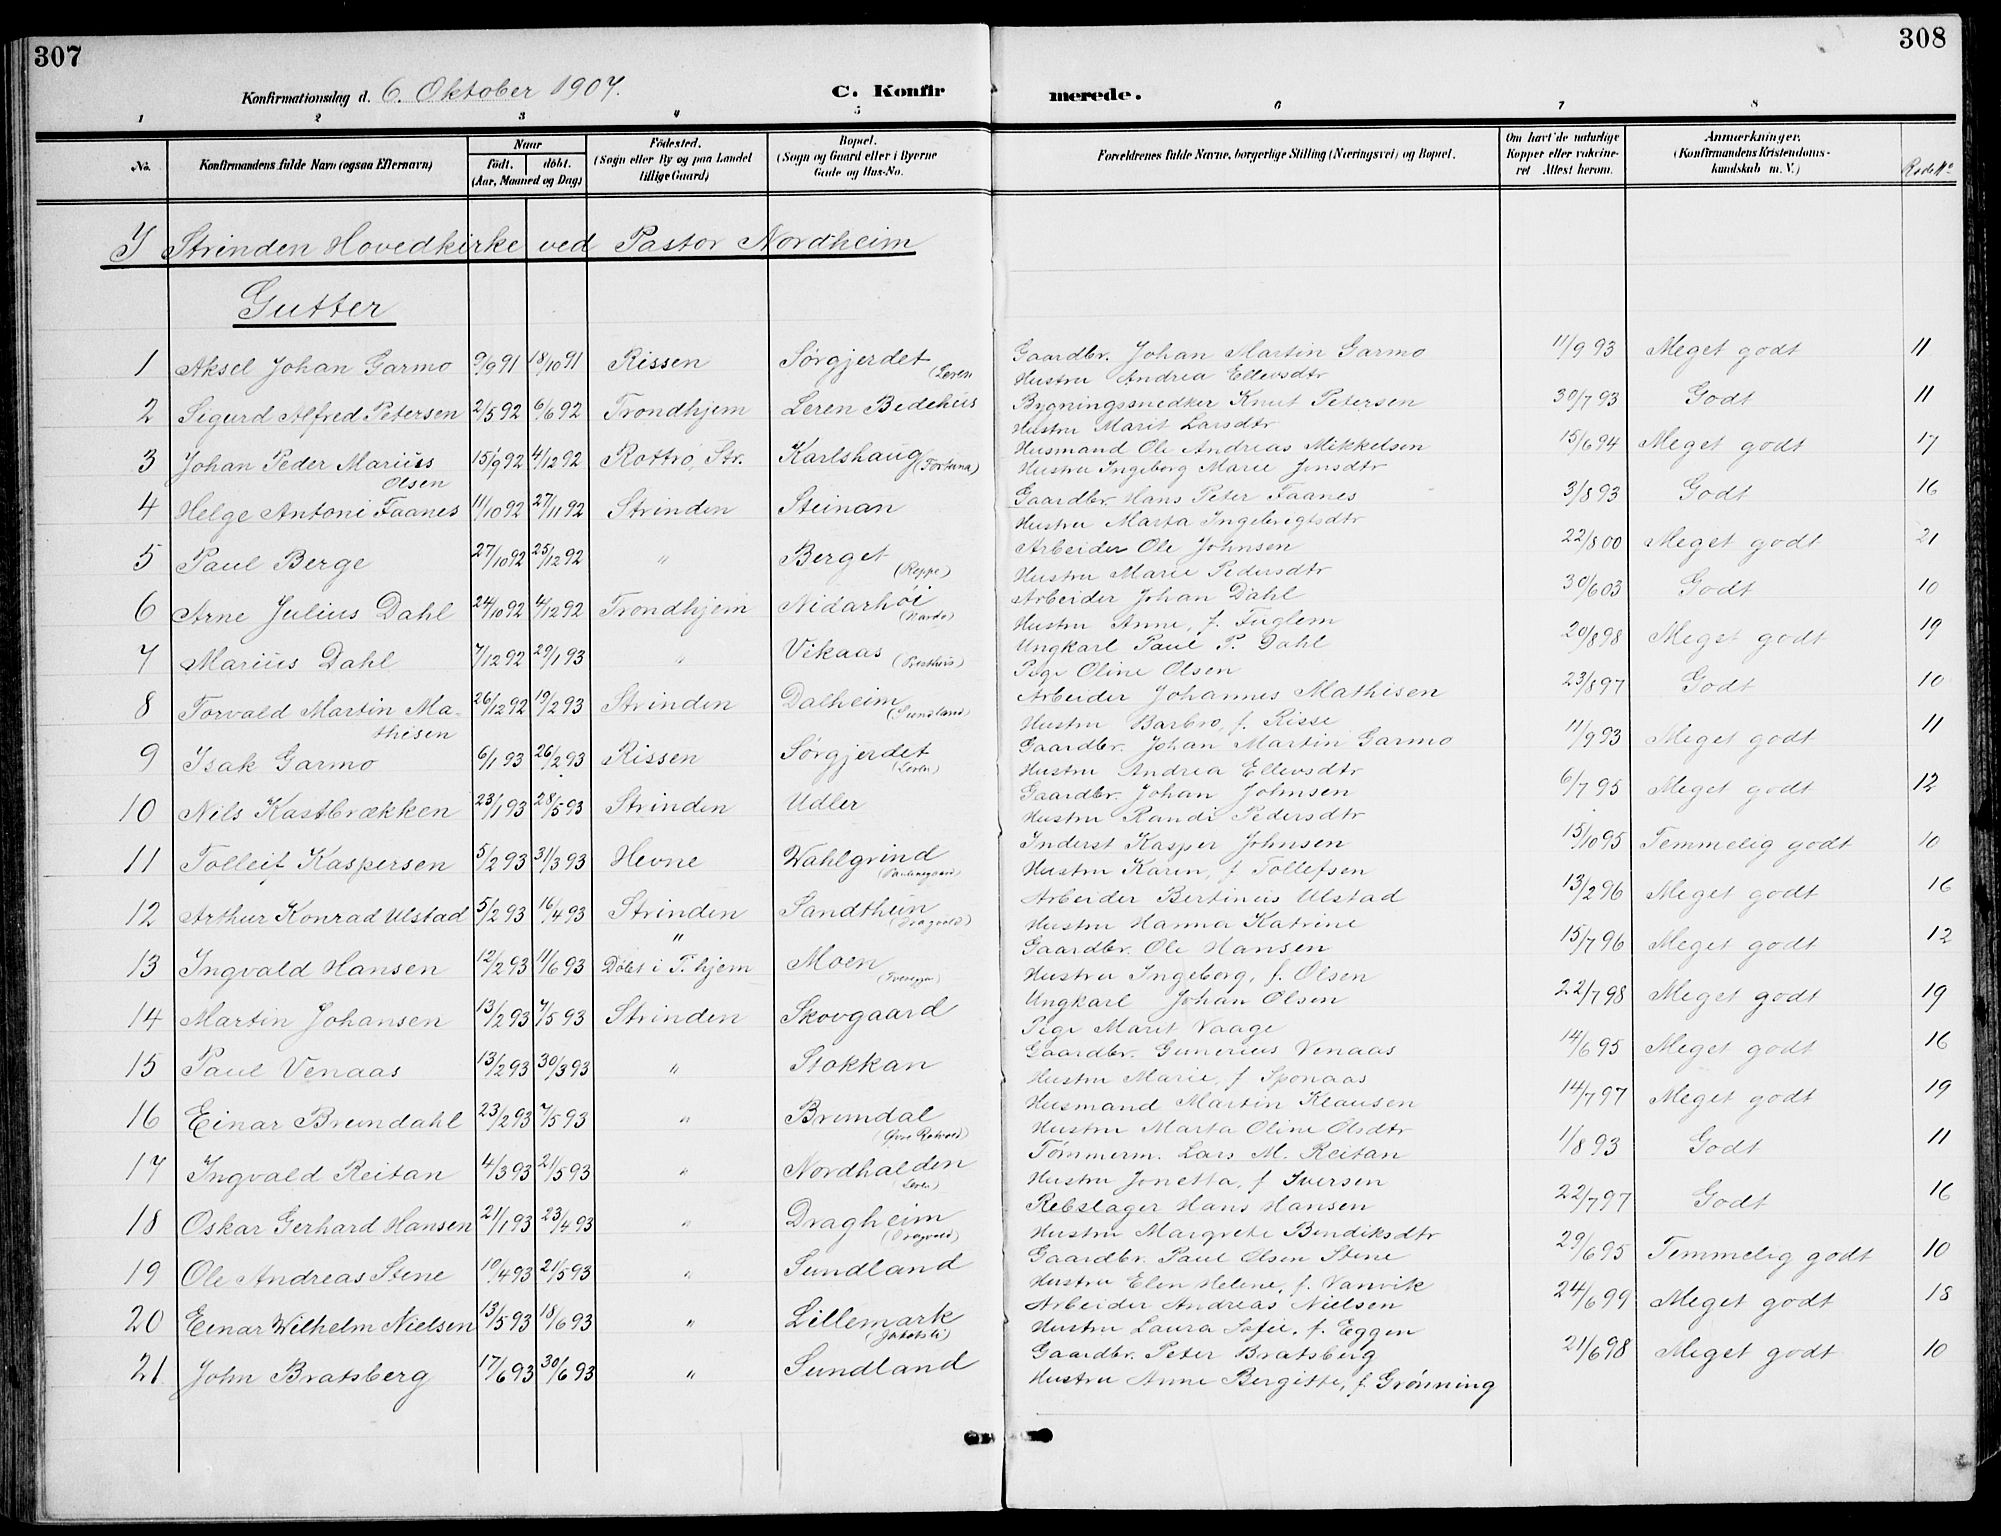 307
308
Konfirmationsdag d. 6. Oktober 1907.
C. Konfirmerede.
1 2 3 4 5 6 7 8
No.
Konfirmandens fulde Navn (ogsaa Efternavn)
Naar
født. døbt.
(Aar, Maaned og Dag)
Fødested.
(Sogn eller By og paa Landet
tillige Gaard)
Bopæl.
(Sogn og Gaard eller i Byerne
Gade og Hus-No.
Forældrenes fulde Navne, borgerlige Stilling (Næringsvei) og Bopæl.
Om havt de naturlige
Kopper eller vakcine-
ret Attest herom.
Anmærkninger.
(Konfirmandens Kristendoms-
kundskab m. V.)
Rode No
I Strinden Hovedkirke ved Pastor Nordheim
Gutter
1 Aksel Johan Garmo 9/9 91 18/10 91 Rissen Sørgjerdet (Leren Gaardbr. Johan Martin Garmo 11/9 93 Meget godt 11
Hustru Andrea Ellevsdtr
2 Sigurd Alfred Petersen 2/5 92 6/6 92 Trondhjem Leren Bedehus Bygningssnedker Knut Petersen 30/7 93 Godt 11
Hustru Marit Larsdtr
3 Johan Peder Marius 15/9 92 4/12 92 Rottro, Str. Karlshaug (Fortuna) Husmand Ole Andreas Mikkelsen 15/6 94 Meget godt 17
Olsen Hustru Ingeborg Marie Jensdtr
4 Helge Antoni Faanes 11/10 92 27/11 92 Strinden Steinan Gaardbr. Hans Peter Faanes 3/8 93 Godt 16
Hustru Marta Ingebrigtsdtr
5 Paul Berge 27/10 92 25/12 92 " Berget (Reppe) Arbeider Ole Johnsen 22/8 00 Meget godt 21
Hustru Marie Pedersdtr
6 Arne Julius Dahl 24/10 92 4/12 92 Trondhjem Nidarhøi (Nardo) Arbeider Johan Dahl 30/6 03 Godt 10
Hustru Anne, f. Fuglem
7 Marius Dahl 7/12 92 29/1 93 " Vikaas (Presthus) Ungkarl Paul P. Dahl 20/8 98 Meget godt 19
Pige Oline Olsen
8 Torvald Martin Ma- 26/12 92 19/2 93 Strinden Dalheim (Sundland) Arbeider Johannes Mathisen 23/8 97 Godt 10
thisen Hustru Barbro, f. Risse
9 Isak Garmo 6/1 93 26/2 93 Rissen Sørgjerdet (Leren) Gaardbr. Johan Martin Garmo 11/9 93 Meget godt 11
Hustru Andrea Ellevsdtr
10 Nils Kastbrækken 23/1 93 28/5 93 Strinden Udler Gaardbr. Johan Johnsen 6/7 95 Meget godt 12
Hustru Randi Pedersdtr
11 Tolleif Kaspersen 5/2 93 31/3 93 Hevne Wahlgrind Inderst Kasper Johnsen 15/10 95 Temmelig godt 10
Hustru Karen, f Tollefsen
12 Arthur Konrad Ulstad 5/2 93 16/4 93 Strinden Sandthun (Dragvold) Arbeider Bertinus Ulstad 13/2 96 Meget godt 16
Hustru Hanna Katrine
13 Ingvald Hansen 12/2 93 11/6 93 " Døbt i T.hjem Moen Gaardbr. Ole Hansen 15/7 96 Meget godt 12
Hustru Ingeborg, f. Olsen
14 Martin Johansen 13/2 93 7/5 93 Strinden Skovgaard Ungkarl Johan Olsen 22/7 98 Meget godt 19
Pige Marit Vaage
15 Paul Venaas 13/2 93 30/3 93 " Stokkan Gaardbr. Gunerius Venaas 14/6 95 Meget godt 16
Hustru Marie, f Sponaas
16 Einar Brundahl 23/2 93 7/5 93 " Brundal Husmand Martin Klausen 14/7 97 Meget godt 19
Hustru Marta Oline Olsdtr
17 Ingvald Reitan 4/3 93 21/5 93 " Nordhalden (Leren) Tømmerm. Lars M. Reitan 1/8 93 Godt 11
Hustru Jonetta, f Iversen
18 Oskar Gerhard Hansen 21/1 93 23/4 93 " Dragheim (Dragvold) Rebslager Hans Hansen 22/7 97 Godt 16
Hustru Margrete Bendiksdtr
19 Ole Andreas Stene 10/4 93 21/5 93 " Sundland Gaardbr. Paul Olsen Stene 29/6 95 Temmelig godt 10
Hustru Elen Helene, f. Vanvik
20 Einar Wilhelm Nielsen 13/5 93 18/6 93 " Lillemark (Jakobsli) Arbeider Andreas Nielsen 24/6 99 Meget godt 18
Hustru Laura Sofie, f. Eggen
21 John Bratsberg 17/6 93 30/6 93 " Sundland Gaardbr. Peter Bratsberg 21/6 98 Meget godt 10
Hustru Anne Bergitte, f Grønning